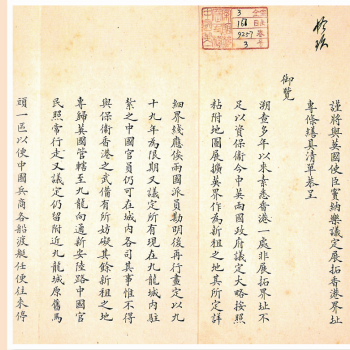 謹將與英國使臣竇納樂議定展拓香港界址
專條繕具清單恭呈
御覽
溯查多年以來素悉香港一處非展拓界址不
足以資保衛今中英兩國政府議定大略按照
粘附地圖展擴英界作為新租之地其所定詳
細界綫應俟兩國派員勘明後再行畫定以九
十九年為限期又議定所有現在九龍城內駐
紮之中國官員仍可在城內各司其事惟不得
與保衛香港之武備有所妨礙其餘新租之地
專歸英國管轄至九龍向通新安陸路中國官
民照常行走又議定仍留附近九龍城原舊馬
頭一區以便中國兵商各船渡艇任便往來停
3
168
9257
3